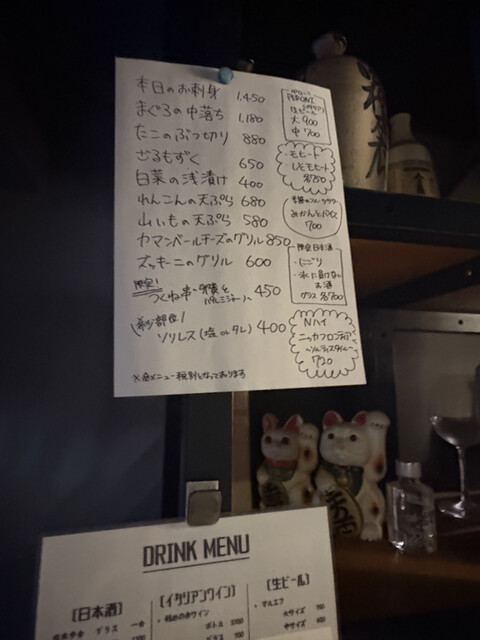 本日のお刺身 1,450
まぐろの中落ち 1,180
たこのぶつ切り 880
ざるもずく 650
白菜の浅漬け 400
れんこんの天ぷら 680
山いもの天ぷら 580
カマンベールチーズのグリル 850
ズッキーニのグリル 600
限定!
つくね串 450
希少部位!
ソリレス(塩orタレ) 400
※全メニュー税別となっております
PERONI
生ビール
大 900
中 700
・モヒート
・しそモヒート
各850
みかんとパイス
700
限定日本酒
・にごり
・氷に負けない
お酒
グラス 各700
Nハイ
ニッカフロンティア
720
DRINK MENU
[日本酒]
グラス 一合
[イタリアンワイン]
ボトル
グラス
[生ビール]
・マルエフ
大サイズ
中サイズ